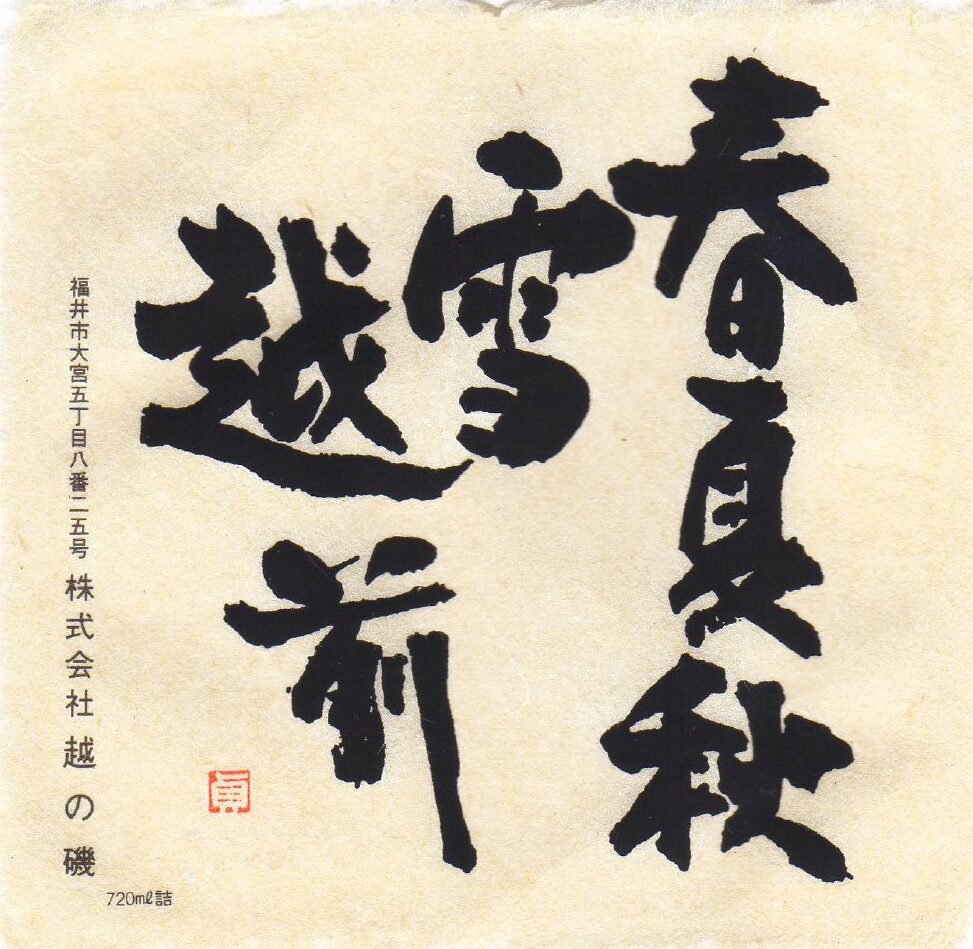 春夏秋
雪
越前
福井市大宮五丁目八番二五号 株式会社 越の磯
720mℓ詰